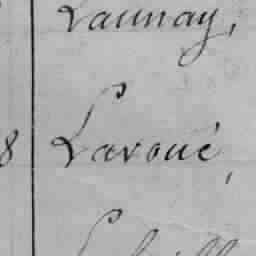 Launay,
8 Lavoué,